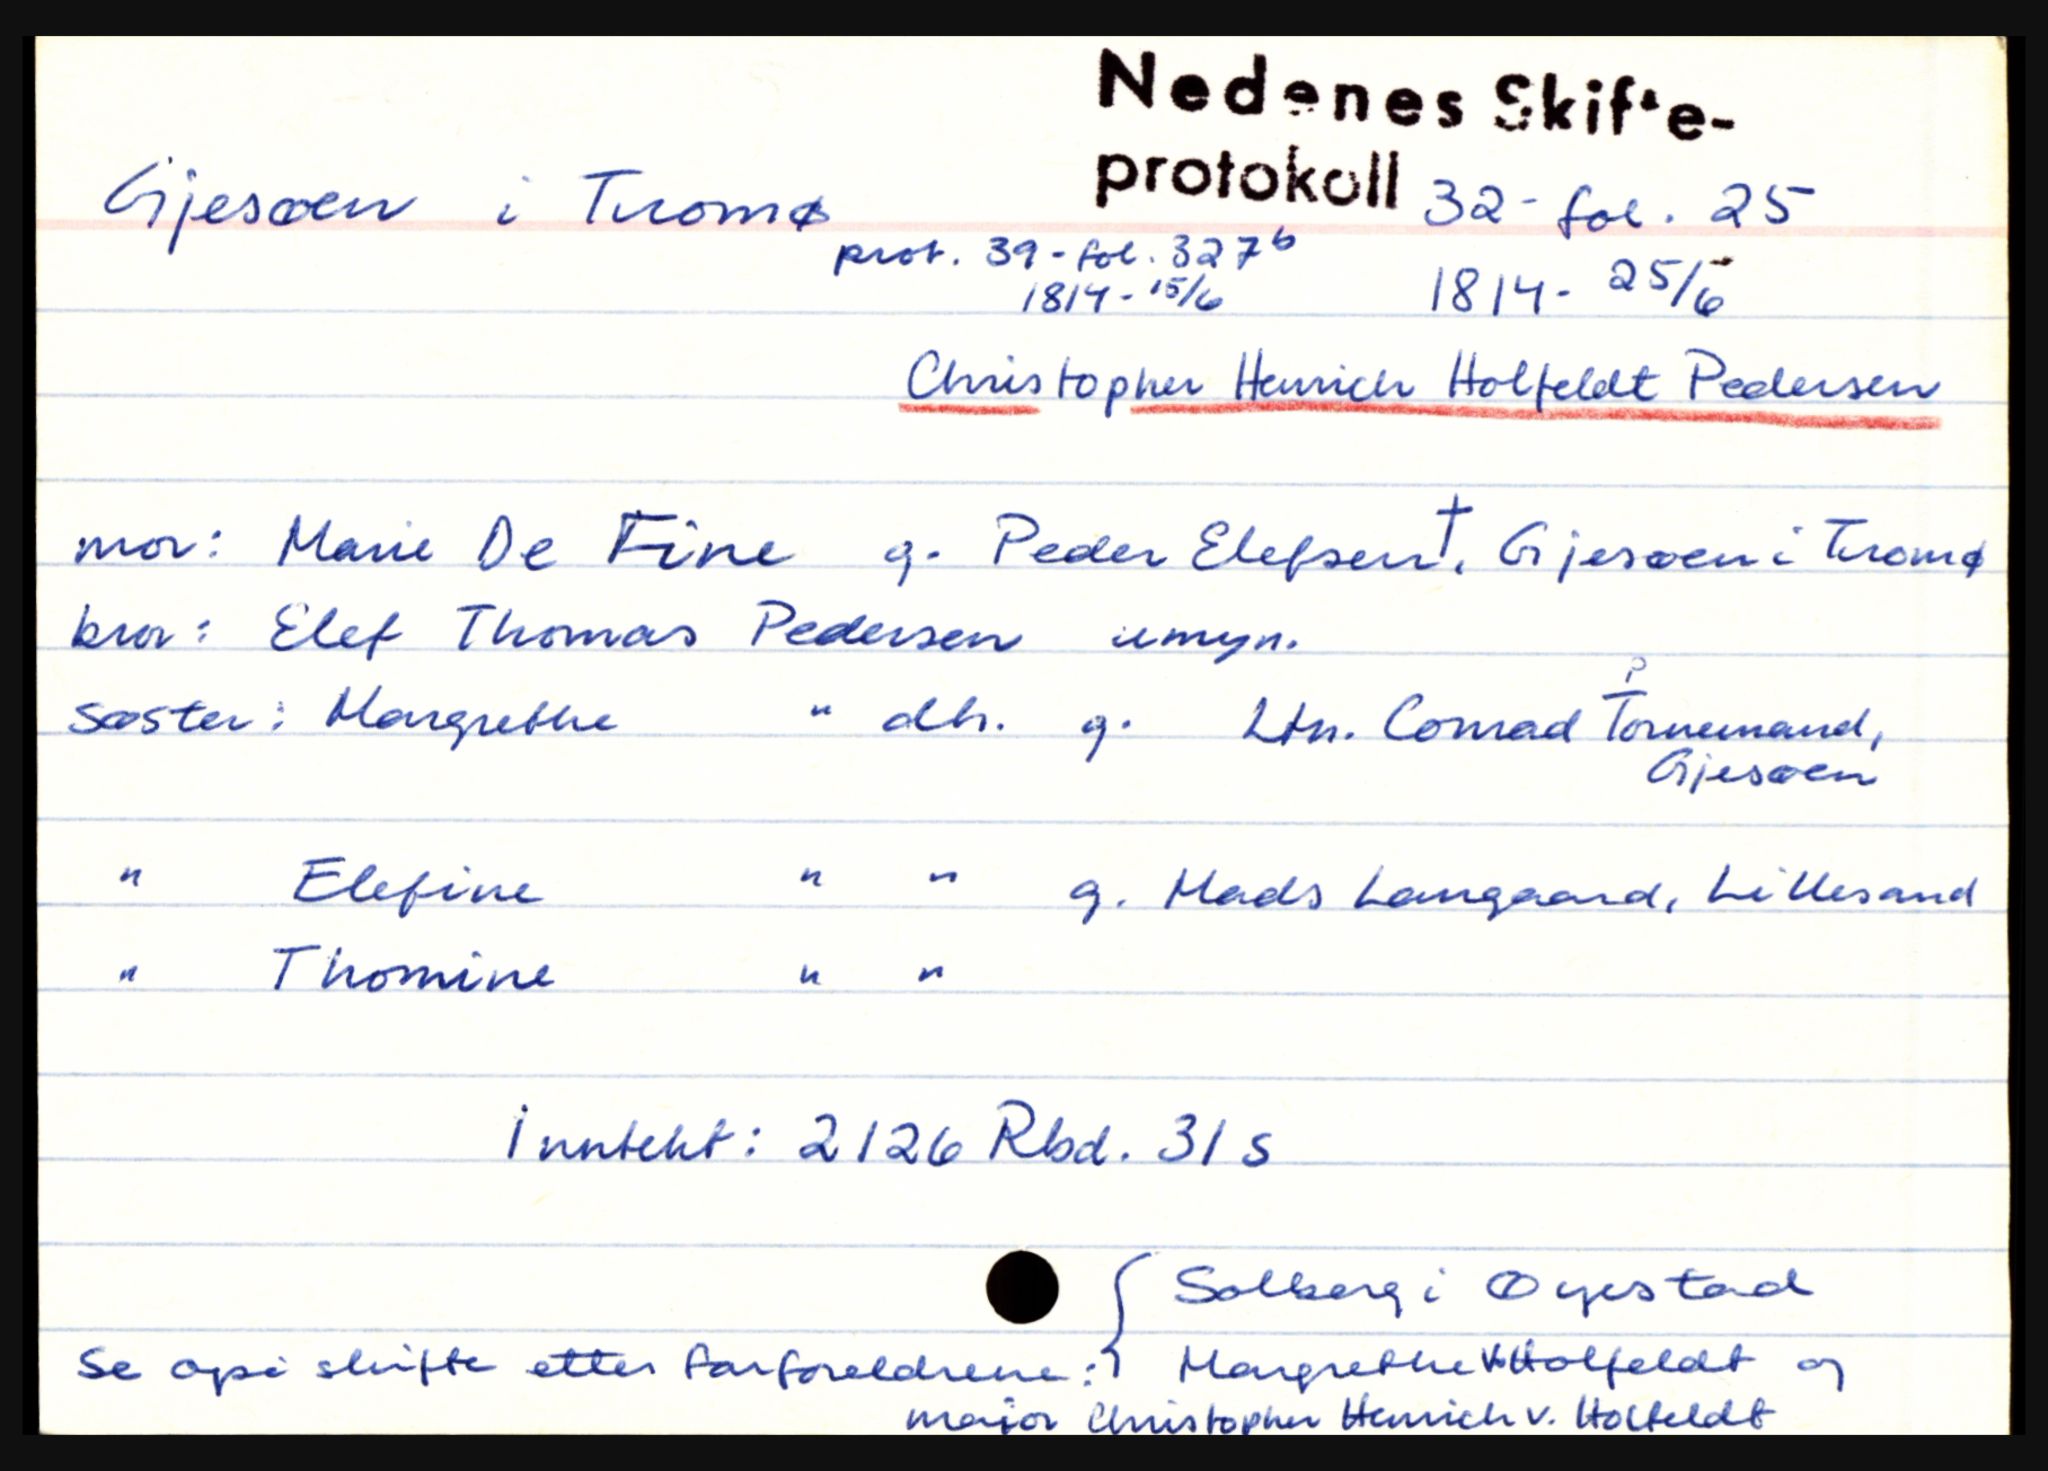 Nedenes Skifte-
protokoll 32 - fol. 25
Gjesøen i Tromø
prot. 39 - fol. 327b
1814 - 15/6
1814 - 25/6
Christopher Henrich Holfeldt Pedersen
mor: Marie De Fine g. Peder Elefsen †, Gjesøen i Tromø
bror: Elef Thomas Pedersen umyn.
søster: Margrethe " dtr. g. Ltn. Conrad Tornemand,
?
Gjesøen
" Elefine " " g. Mads Langaard, Lillesand
" Thomine " "
Inntekt: 2126 Rbd. 31 s
{ Solberg i Øyestad
Se også skifte etter farforeldrene: Margrethe v. Holfeldt og
major Christopher Henrich v. Holfeldt